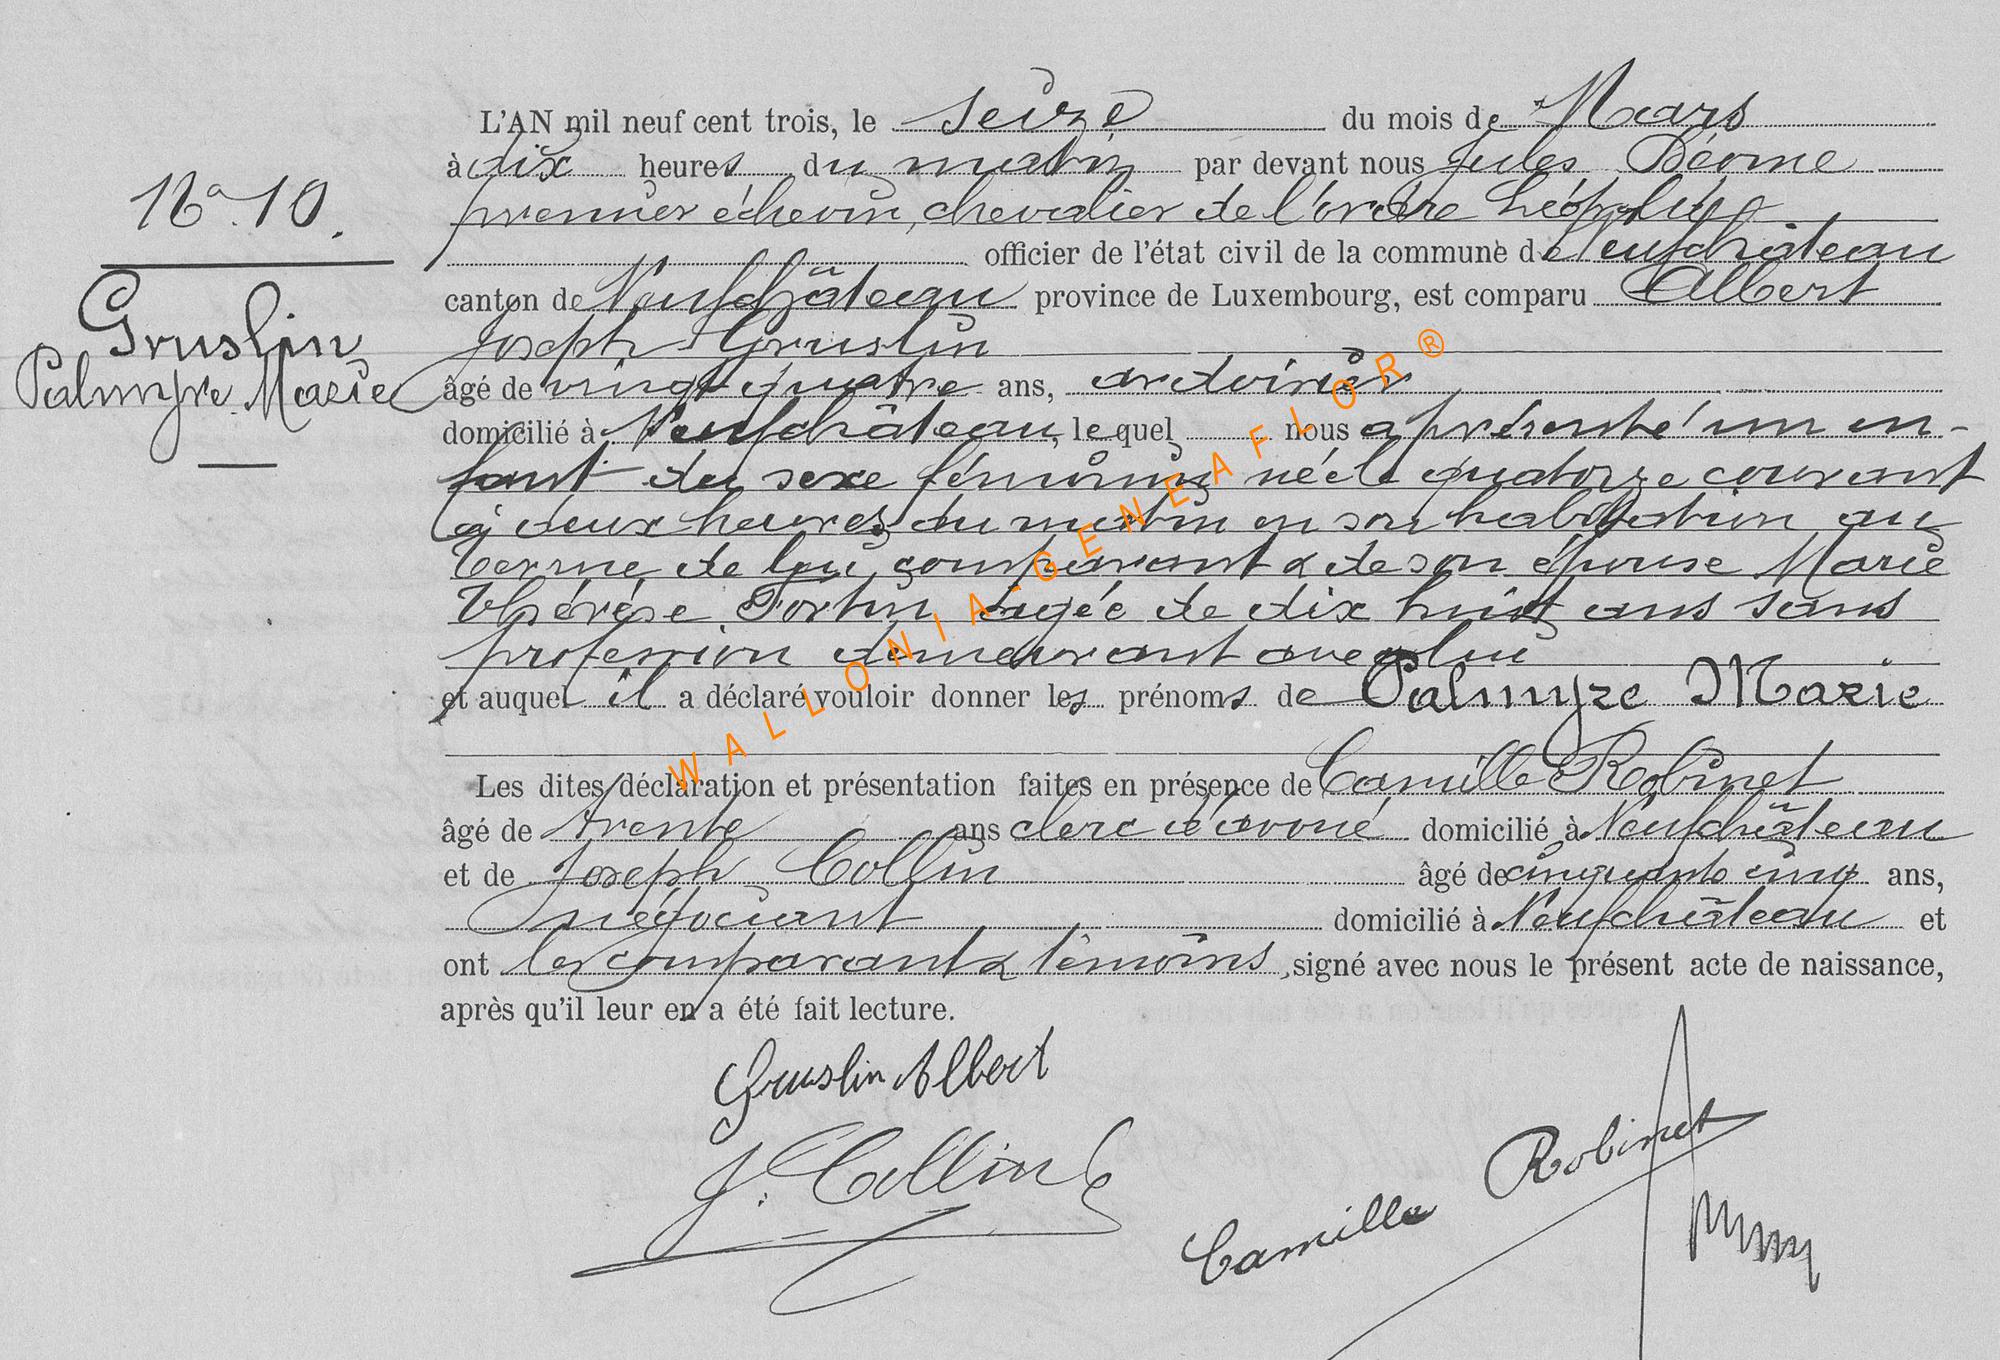 L'AN mil neuf cent trois, le seize du mois de Mars
à dix heures du matin par devant nous Jules
premier échevin, chevalier de l'ordre Léopold
officier de l'état civil de la commune de Neufchâteau
canton de Neufchâteau province de Luxembourg, est comparu Albert
Joseph Gruslin
âgé de vingt quatre ans, ardoisier
domicilié à Neufchâteau, lequel nous a présenté un en-
fant du sexe féminin née le quatorze courant
à deux heures du matin en son habitation au
Terme de lui comparant & de son épouse Marie
Thérèse Fortin âgée de dix huit ans sans
profession demeurant avec lui
et auquel il a déclaré vouloir donner les prénoms de Palmyre Marie
Les dites déclaration et présentation faites en présence de Camille Robinet
âgé de trente ans clerc d'avoué domicilié à Neufchâteau
et de Joseph Collin âgé de cinquante cinq ans,
négociant domicilié à Neufchâteau et
ont les comparant & témoins signé avec nous le présent acte de naissance,
après qu'il leur en a été fait lecture.
No 10.
Gruslin
Palmyre Marie
Gruslin Albert
J. Collin
Camille Robinet
WALLONIA-GENEAFLOR®